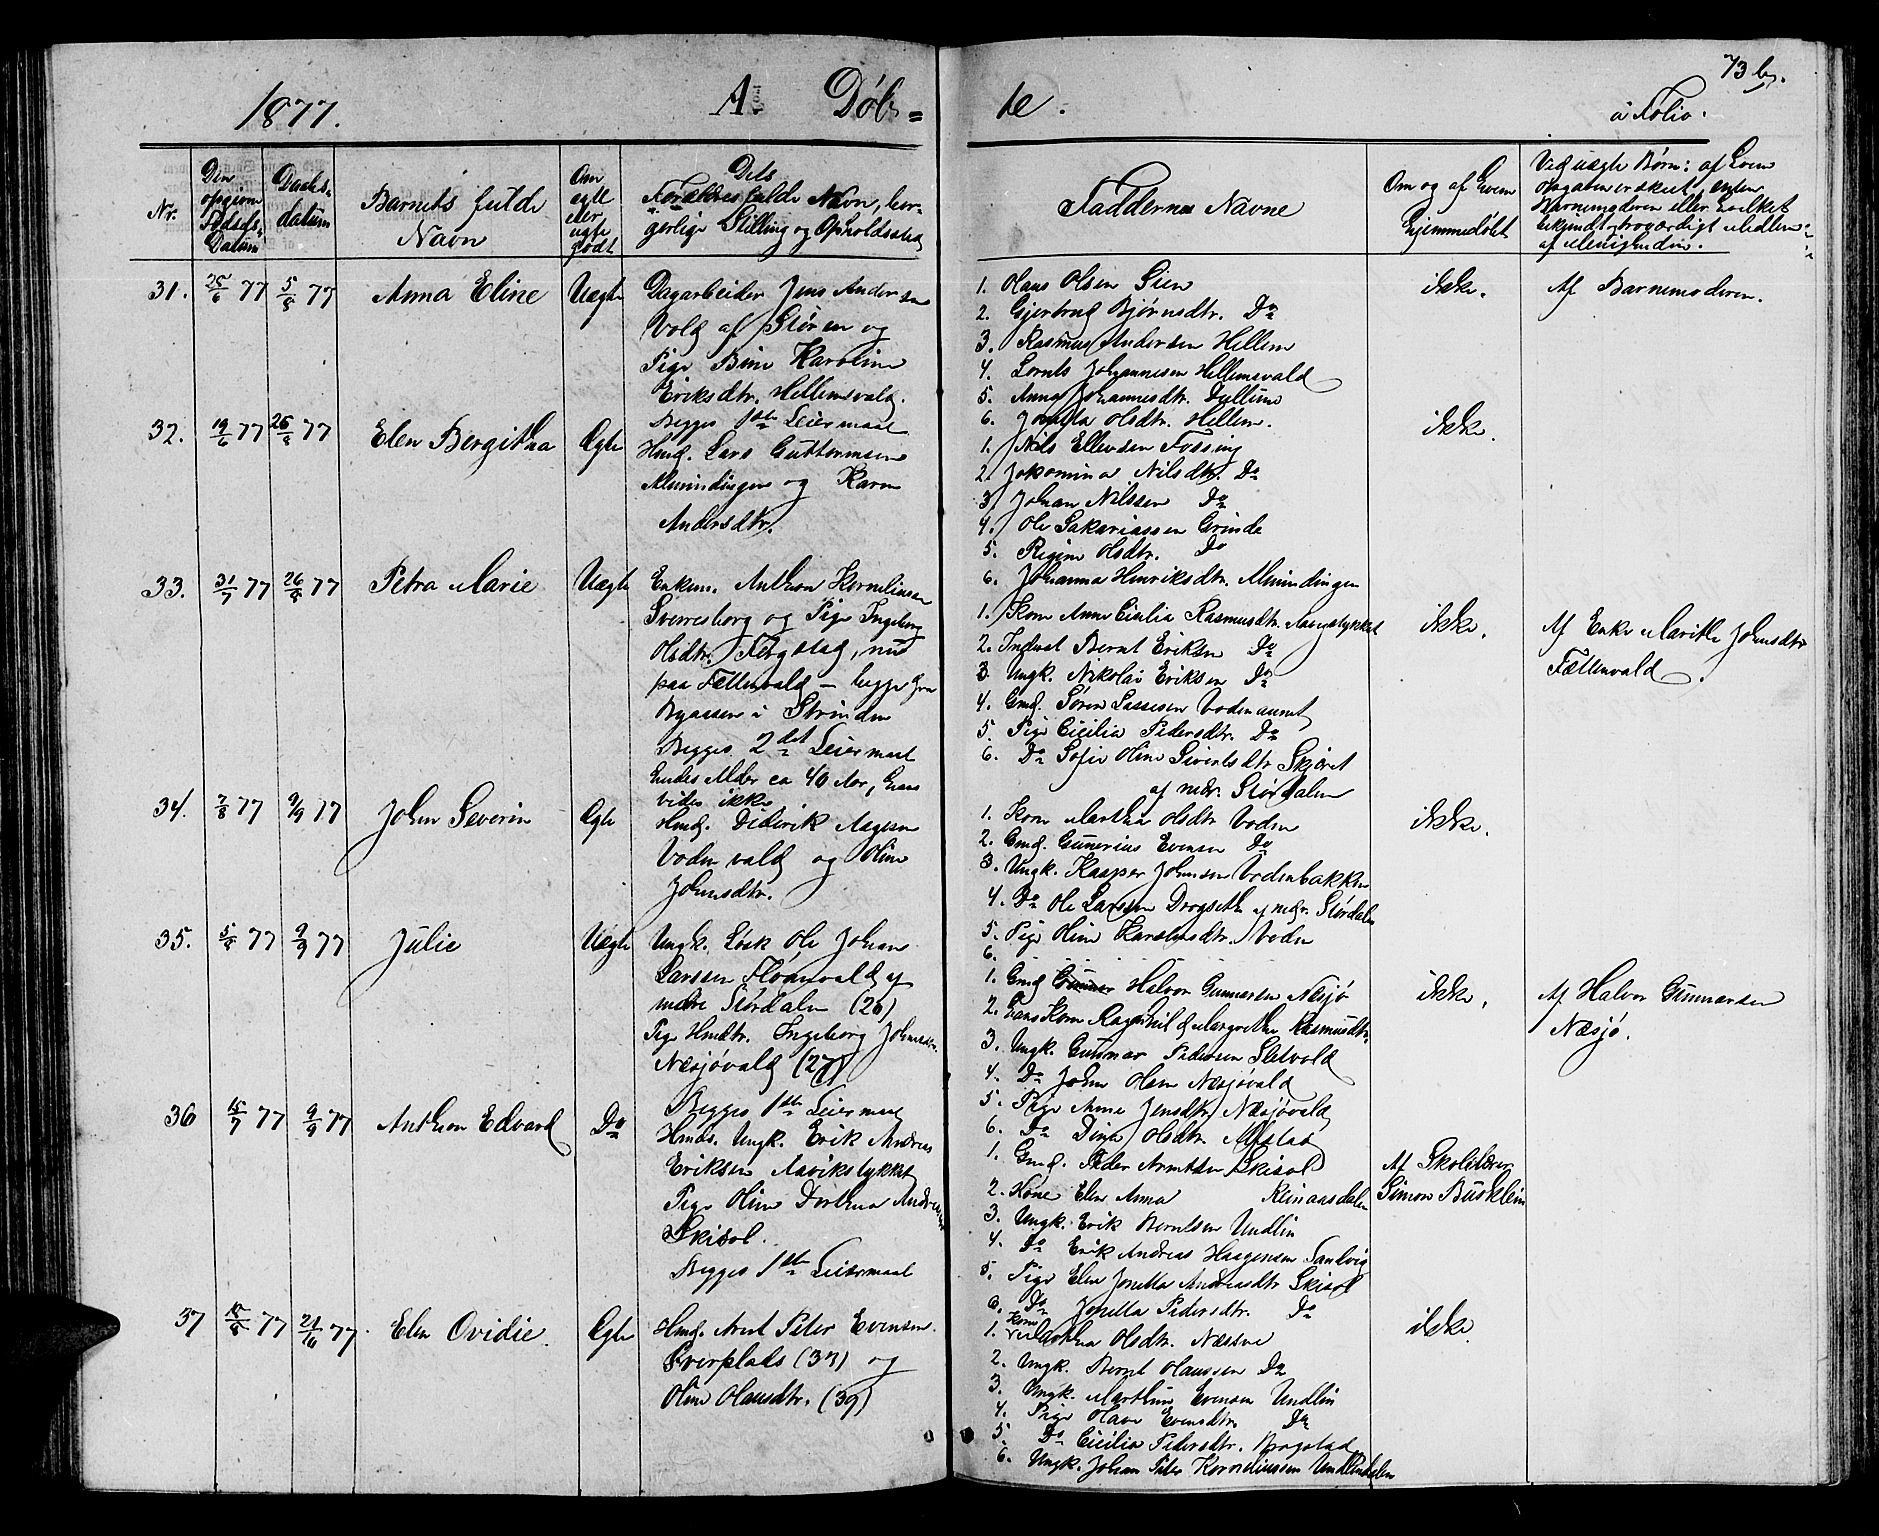 73 b.
1877. A. Døb= te. à Folio.
Nr.
Den opgivne Fødsels= Datum
Daabs= datum
Barnets fulde Navn
Om egte eller uegte født
Dets Forældres fulde Navn, bor= gerlige Stilling og Opholdssted
Faddernes Navne
Om og af Hvem Hjemmedøbt
Ved uegte Børn: af Hvem Opgaven er skeet, enten Barnemoderen eller hvilket bekjendt troværdigt Medlem af Menigheden.
31. 25/6 77 5/8 77 Anna Eline Uegte
Dagarbeider Jens Andersen
Vold af Støren og
Pige Bine Karoline
Eriksdtr. Hellemsvald.
Begges 1ste Leiermaal
1. Hans Olsen Sien
2. Gjertrud Bjørnsdtr. Do
3. Rasmus Andersen Hellem
4. Lornts Johannesen Hellemsvald
5. Anna Johannesdtr. Dullum
6. Jonetta Olsdtr. Hellem.
ikke.
Af Barnemoderen.
32. 19/6 77 26/8 77 Elen Bergitha Egte
Hmd. Lars Guttormsen
Almindingen og Karen
Andersdtr.
1. Nils Ellevsen Fossing
2. Jokomina Nilsdtr. Do
3. Johan Nilssen Do
4. Ole Sakariassen Grinde
5. Regine Olsdtr. Do
6. Johanna Henriksdtr. Almindingen
ikke.
33. 31/7 77 26/8 77 Petra Marie Uegte
Enkem. Anthon Kornelius
Sverresborg og Pige Ingeborg
Olsdtr. Fergstad, nu
paa Fættenvald – begge fra
Byaasen i Strinden
Begges 2det Leiermaal
hendes Alder ca 40 Aar, hans
vides ikke
1. Kone Anne Cicilia Rasmusdtr. Aavigstykket
2. Inderst Bernt Eriksen Do
3. Ungk. Nikolai Eriksen Do
4. Gmd. Søren Lassesen Vodenaunet
5. Pige Cicilia Pedersdtr. Do
6. Do Sofie Oline Sivertsdtr Skjøret
af nedr. Størdalen
ikke.
Af Enke Marith Johnsdtr
Fættenvald.
34. 7/8 77 9/9 77 John Severin Egte
Hmd. Diderik Aagesen
Voden vald og Oline
Johnsdtr.
1. Kone Martha Olsdtr Voden
2. Gmd. Gunerius Evensen Do
3. Ungk. Kasper Johnsen Vodenbakken
4. Do Ole Larsen Drogseth af nedr. Størdalen
5. Pige Oline Karolusdtr. Voden
6.
ikke.
35. 5/8 77 9/9 77 Julie Uegte
Ungk. Løsk Ole Johan
Larssen Floanvald af
nedre Størdalen (26)
Pige Hmdtr. Ingeborg Johnsdtr.
Næsjøvald (27)
Begges 1ste Leiermaal
1. Gmd Gunnar Halvor Gunnarsen Næsjø
2. Hans Kone Ragnhild Margrethe Rasmusdtr.
3. Ungk. Gunnar Pedersen Sletvold
4. Do John Olsen Næsjøvald
5. Pige Anne Jensdtr Næsjøvald
6. Do Dina Olsdtr. Alstad
ikke.
Af Halvor Gunnarsen
Næsjø.
36 15/7 77 9/9 77 Anthon Edvard Do
Hmds. Ungk. Erik Andreas
Eriksen Aavikstykket
Pige Oline Dorthea Andreasdtr
Skisol.
Begges 1ste Leiermaal
1. Gmd. Peder Arntsen Skisol
2. Kone Elen Anna Reinaasdalen
3. Ungk. Erik Berntsen Undlin
4. Do Erik Andreas Haagensen Sandvig
5. Pige Elen Jonetta Andreasdtr Skisol
6. Do Jonetta Pedersdtr. Do
Af Skolelærer
Simon Busklein
37 15/8 77 21/10 77. Elen Ovidie. Egte
Hmd. Arnt Peter Evensen
Sverplads (37) og
Oline Olausdtr. (39)
1. Kone Martha Olsdtr. Næstve
2. Ungk. Bernt Olaussen Do
3. Ungk. Marthin Evensen Undlin
4. Pige Olava Evensdtr. Do
5. Do Cicilia Pedersdtr. Krogstad
6. Ungk. Johan Peter Korneliussen Undlindalen
ikke.